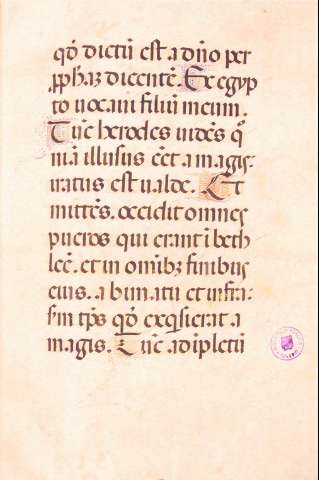 qď dictū est. a dn̄o per
ꝓph̄az dicentē. Ex egyp
to uocaui filiū meum.
Tūc herodes uidēs qm̄
nā illusus eēt a magis.
iratus est ualde. Et
mittēs. occidit omnes
pueros qui erant ī beth
leē. et in omībz finibus
eius. a bimatu et infra.
s̄m tp̄s qď exq̄sierat a
magis. Tūc adīpletū